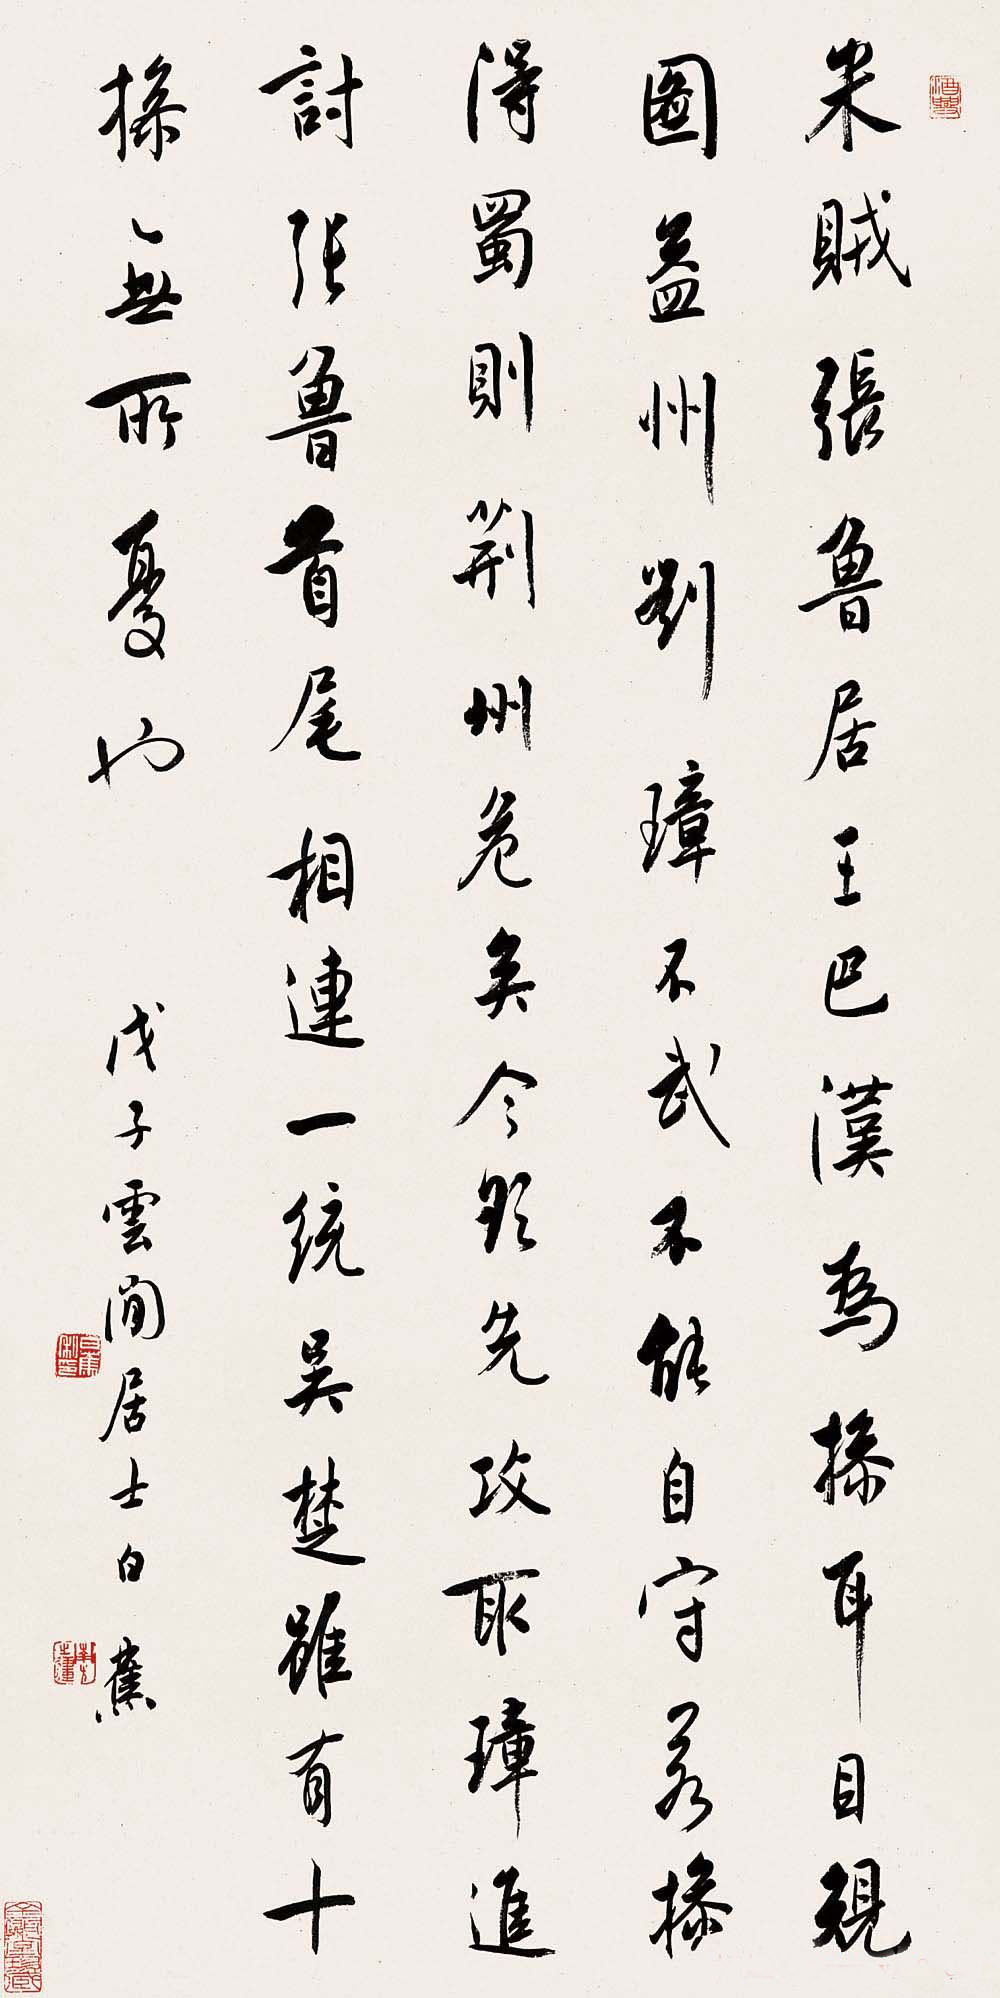 米賊張魯居王巴漢為操耳目規
圖益州劉璋不武不能自守若操
得蜀則荆州危矣今欲先攻取璋進
討張魯首尾相連一統吴楚雖有十
操無所憂也
戊子雲間居士白蕉